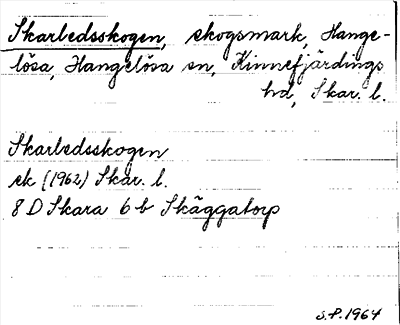 Skarbedsskogen, skogsmark, Hange-
lösa, Hangelösa sn, Kinnefjärdings
hd, Skar. l.
Skarbedsskogen
sk (1962) Skar. l.
8 D Skara 6 b Skäggatorp
S.P. 1964